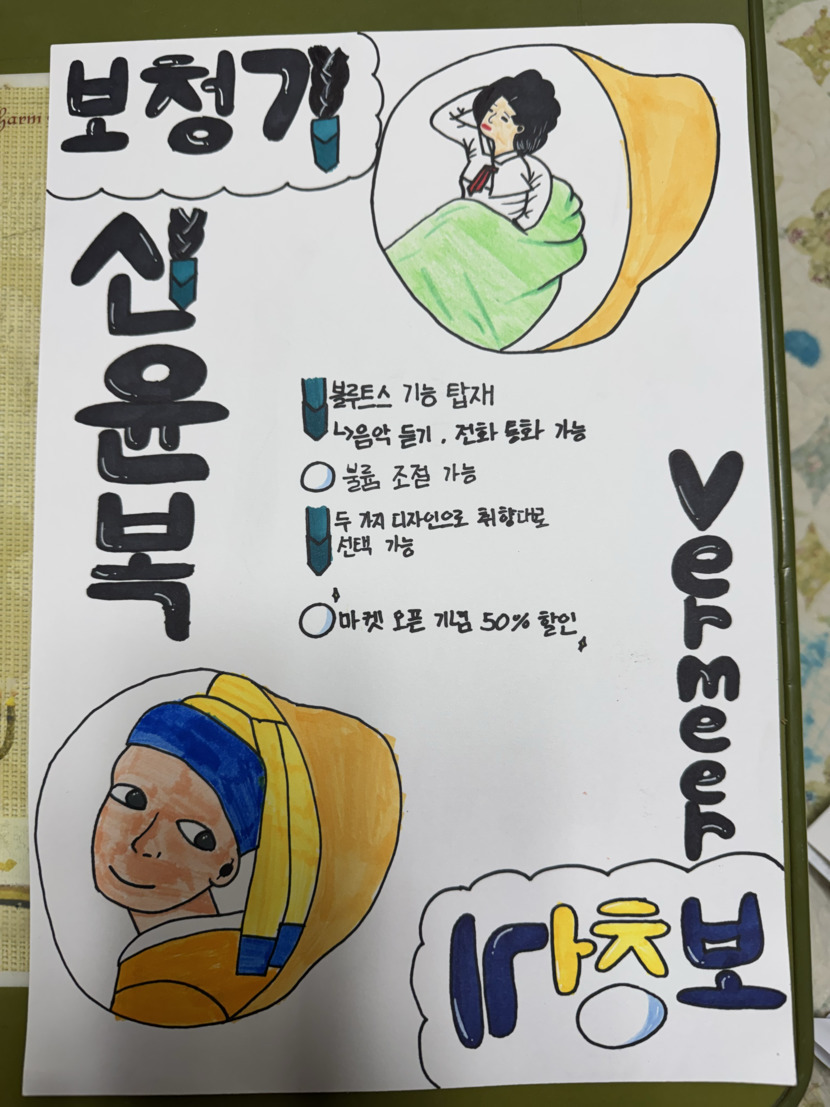 보청기
신윤복
블루트스 기능 탑재
↳음악 듣기, 전화 통화 가능
볼륨 조절 가능
두 가지 디자인으로 취향대로
선택 가능
마켓 오픈 기념 50% 할인
Vermeer
보청기